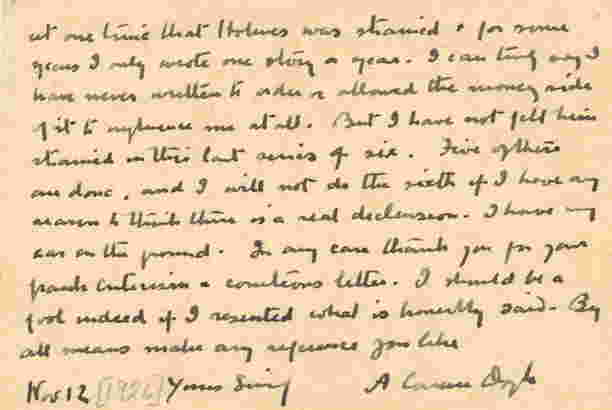 at one time that Holmes was strained & for some
years I only wrote one story a year. I can truly say I
have never written to order or allowed the money side
of it to influence me at all. But I have not felt him
strained in this last series of six. Five of these
are done, and I will not do the sixth if I have any
reason to think there is a real declension. I have my
ear on the ground. In any case thank you for your
frank criticism & courteous letter. I should be a
fool indeed if I resented what is honestly said. By
all means make any reference you like
Nov 12 [1926] Yours Sincy A Conan Doyle